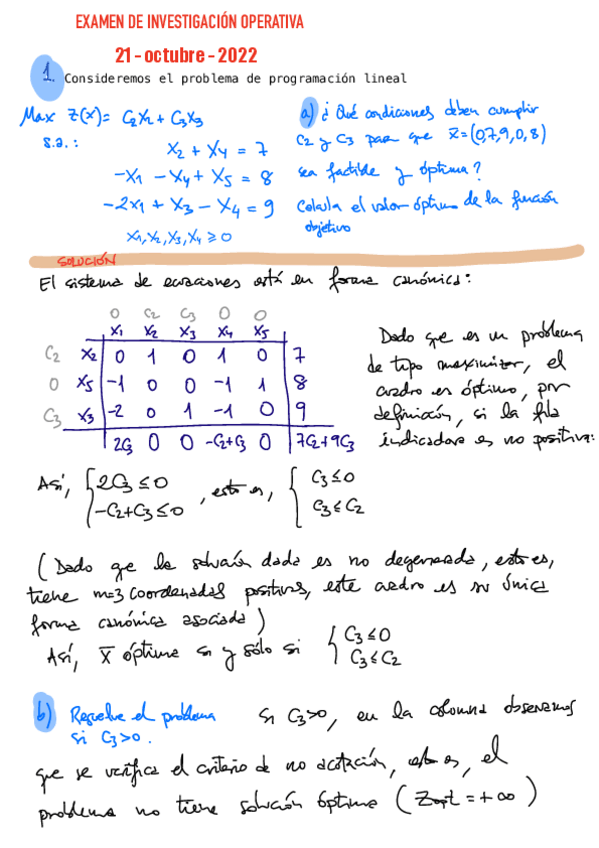 EXAMEN DE INVESTIGACIÓN OPERATIVA
21 - octubre - 2022
1. Consideremos el problema de programación lineal
Max Z(x) = C₂X₂ + C₃X₃
s.a.:
X₂ + X₄ = 7
-X₁ - X₄ + X₅ = 8
-2X₁ + X₃ - X₄ = 9
X₁, X₂, X₃, X₄ ≥ 0
a) ¿Qué condiciones deben cumplir
C₂ y C₃ para que x̄ = (0,7,9,0,8)
sea factible y óptima?
Calcula el valor óptimo de la función
objetivo
SOLUCIÓN
El sistema de ecuaciones está en forma canónica:
0 C₂ C₃ 0 0
X₁ X₂ X₃ X₄ X₅
C₂ X₂ 0 1 0 1 0 7
0 X₅ -1 0 0 -1 1 8
C₃ X₃ -2 0 1 -1 0 9
2C₃ 0 0 -C₂+C₃ 0 7C₂+9C₃
Dado que es un problema
de tipo maximizar, el
cuadro es óptimo, por
definición, si la fila
indicadora es no positiva:
Así, { 2C₃ ≤ 0
-C₂+C₃ ≤ 0 , esto es, { C₃ ≤ 0
C₃ ≤ C₂
(Dado que la solución dada es no degenerada, esto es,
tiene m=3 coordenadas positivas, este cuadro es su única
forma canónica asociada)
Así, x̄ óptima si y sólo si { C₃ ≤ 0
C₃ ≤ C₂
b) Resuelve el problema
si C₃>0.
Si C₃>0, en la columna observamos
que se verifica el criterio de no acotación, esto es, el
problema no tiene solución óptima (Zopt = +∞)